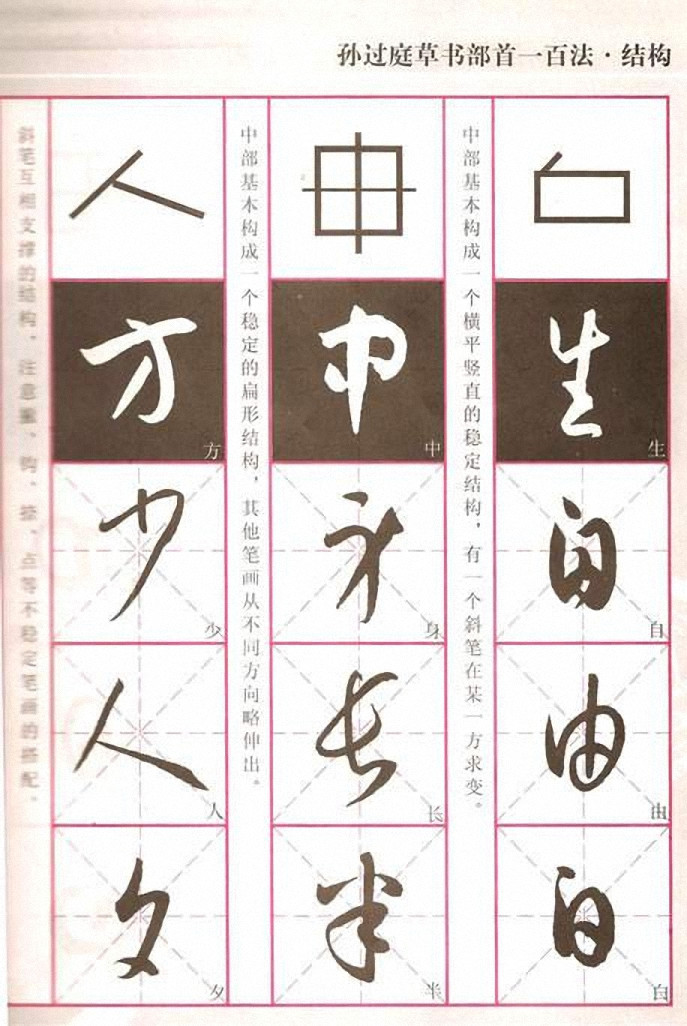 孙过庭草书部首一百法·结构
生
生
自
自
由
由
白
白
中部基本构成一个横平竖直的稳定结构，有一个斜笔在某一方求变。
中
中
身
身
长
长
半
半
中部基本构成一个稳定的扁形结构，其他笔画从不同方向略伸出。
方
方
少
少
人
人
夕
夕
斜笔互相支撑的结构，注意撇、钩、捺、点等不稳定笔画的搭配。